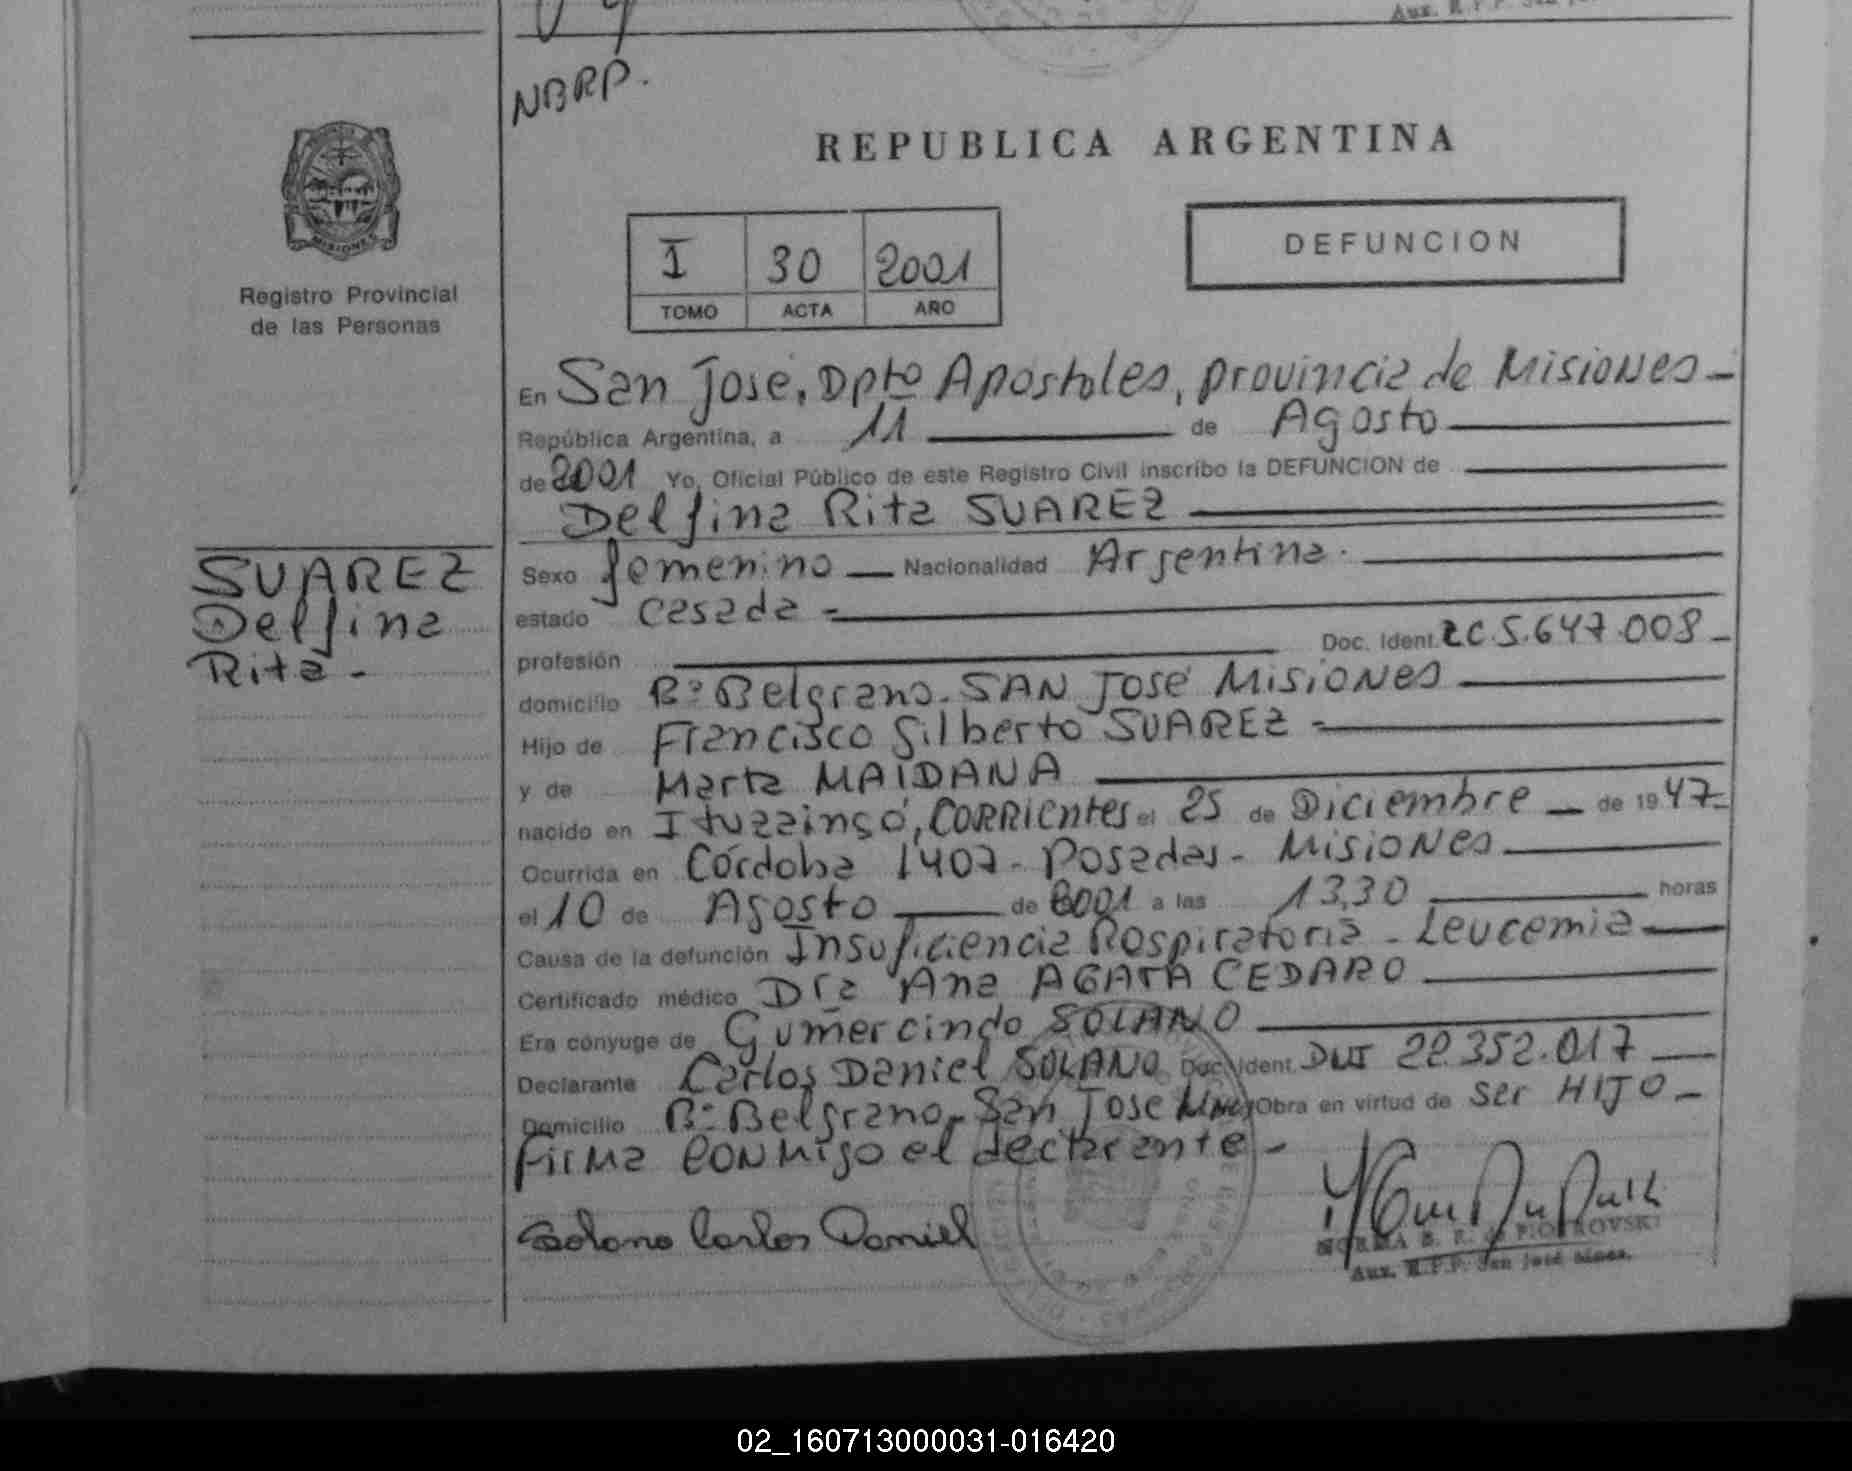 Aux. R.P.P. San José
NBRP.
REPUBLICA ARGENTINA
MISIONES
Registro Provincial
de las Personas
I 30 2001
TOMO ACTA AÑO
DEFUNCION
En San José, Dpto Apostoles, provincia de Misiones -
República Argentina, a 11 de Agosto
de 2001 Yo, Oficial Público de este Registro Civil inscribo la DEFUNCION de
Delfina Rita SUAREZ
SUAREZ
Delfina
Rita -
Sexo femenino Nacionalidad Argentina.
estado casada -
profesión Doc. Ident. LC 5.647.008 -
domicilio Bº Belgrano. SAN José Misiones
Hijo de Francisco Gilberto SUAREZ -
y de Marta MAIDANA
nacido en Ituzaingó, CORRIENTES el 25 de Diciembre de 1947 -
Ocurrida en Córdoba 1407 - Posadas - Misiones
el 10 de Agosto de 2001 a las 13,30 horas
Causa de la defunción Insuficiencia Respiratoria - Leucemia
Certificado médico Dra Ana AGATA CEDARO
Era cónyuge de Gumercindo SOLANO
Declarante Carlos Daniel SOLANO Doc. Ident. DNI 22.352.017
Domicilio Bº Belgrano - San José Mnes Obra en virtud de ser HIJO -
firma conmigo el declarante -
Solano Carlos Daniel
NORMA B. R. de PIOTROVSKI
Aux. R.P.P. San José Mnes.
02_160713000031-016420